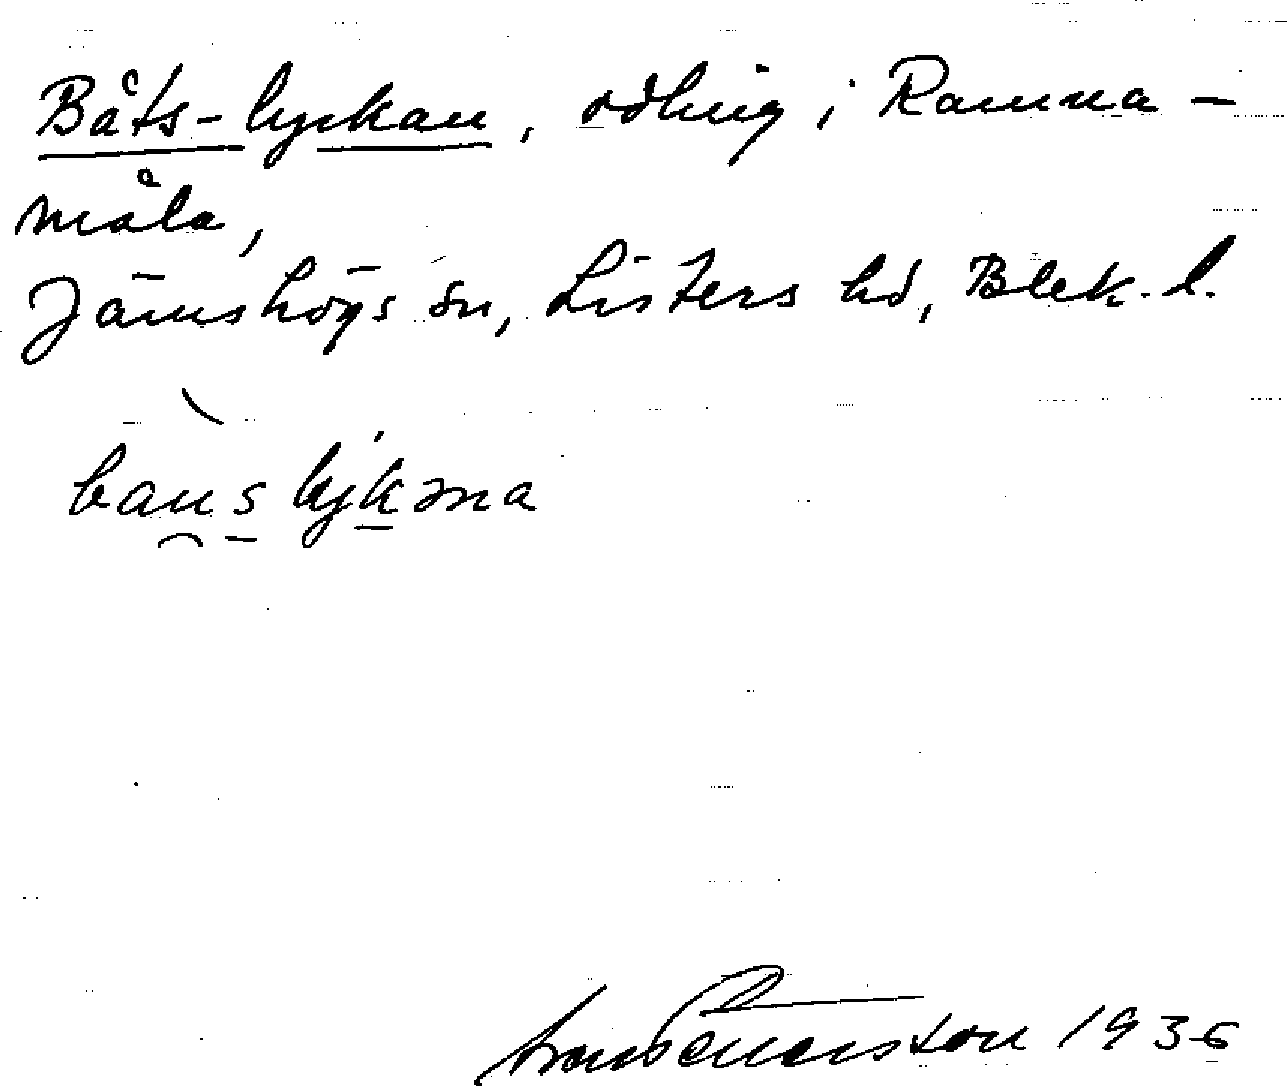 Båts-lyckan, odling i Ramna-
måla,
Jämshögs sn, Listers hd, Blek. l.
baus lykəna
Pettersson 1936